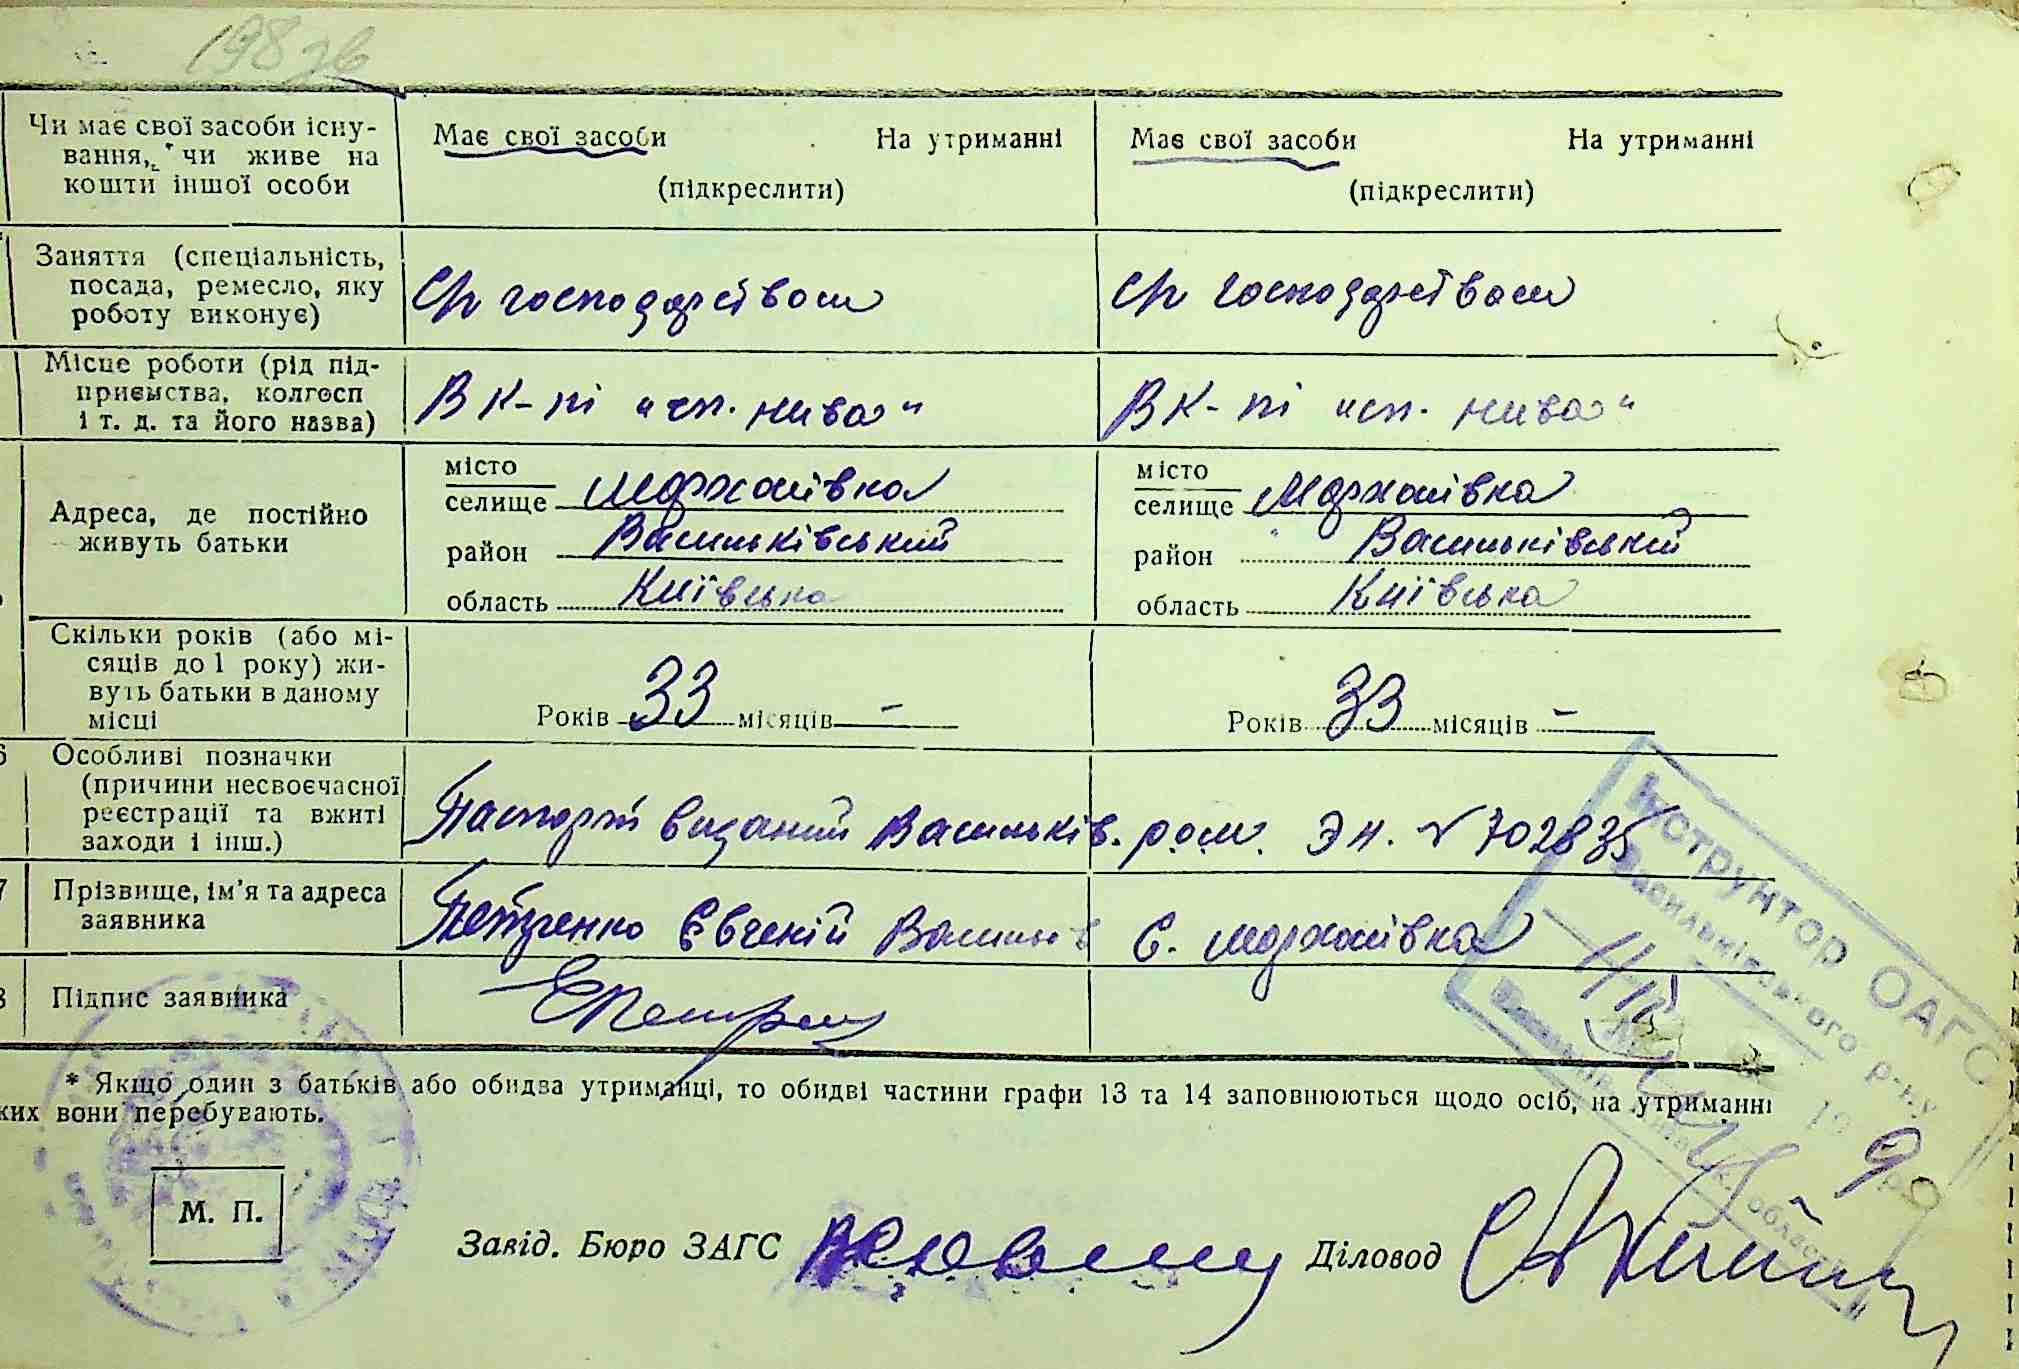 198зв
Чи має свої засоби існу-
вання, * чи живе на
кошти іншої особи
Має свої засоби На утриманні
(підкреслити)
Має свої засоби На утриманні
(підкреслити)
Заняття (спеціальність,
посада, ремесло, яку
роботу виконує)
С/г господарством
С/г господарством
Місце роботи (рід під-
приємства, колгосп
і т. д. та його назва)
В к-пі "сп. нива"
В к-пі "сп. нива"
Адреса, де постійно
живуть батьки
місто
селище Мархалівка
район Васильківський
область Київська
місто
селище Мархалівка
район Васильківський
область Київська
Скільки років (або мі-
сяців до 1 року) жи-
вуть батьки в даному
місці
Років 33 місяців –
Років 33 місяців –
6 Особливі позначки
(причини несвоєчасної
реєстрації та вжиті
заходи і інш.)
Паспорт виданий Васильків. ром. ЭН. № 702835
7 Прізвище, ім'я та адреса
заявника
Петренко Євгеній Васильов с. Мархалівка
8 Підпис заявника
ЕПетрен
* Якщо один з батьків або обидва утриманці, то обидві частини графи 13 та 14 заповнюються щодо осіб, на утриманні
ких вони перебувають.
М. П.
Завід. Бюро ЗАГС
Діловод
Інструктор ОАГС
Васильківського р-ну